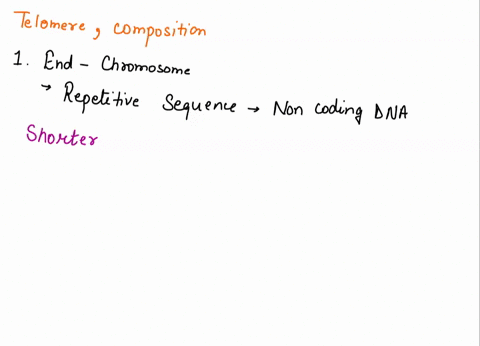 Telomere, composition
1. End - Chromosome
→ Repetitive Sequence → Non coding DNA
Shorter